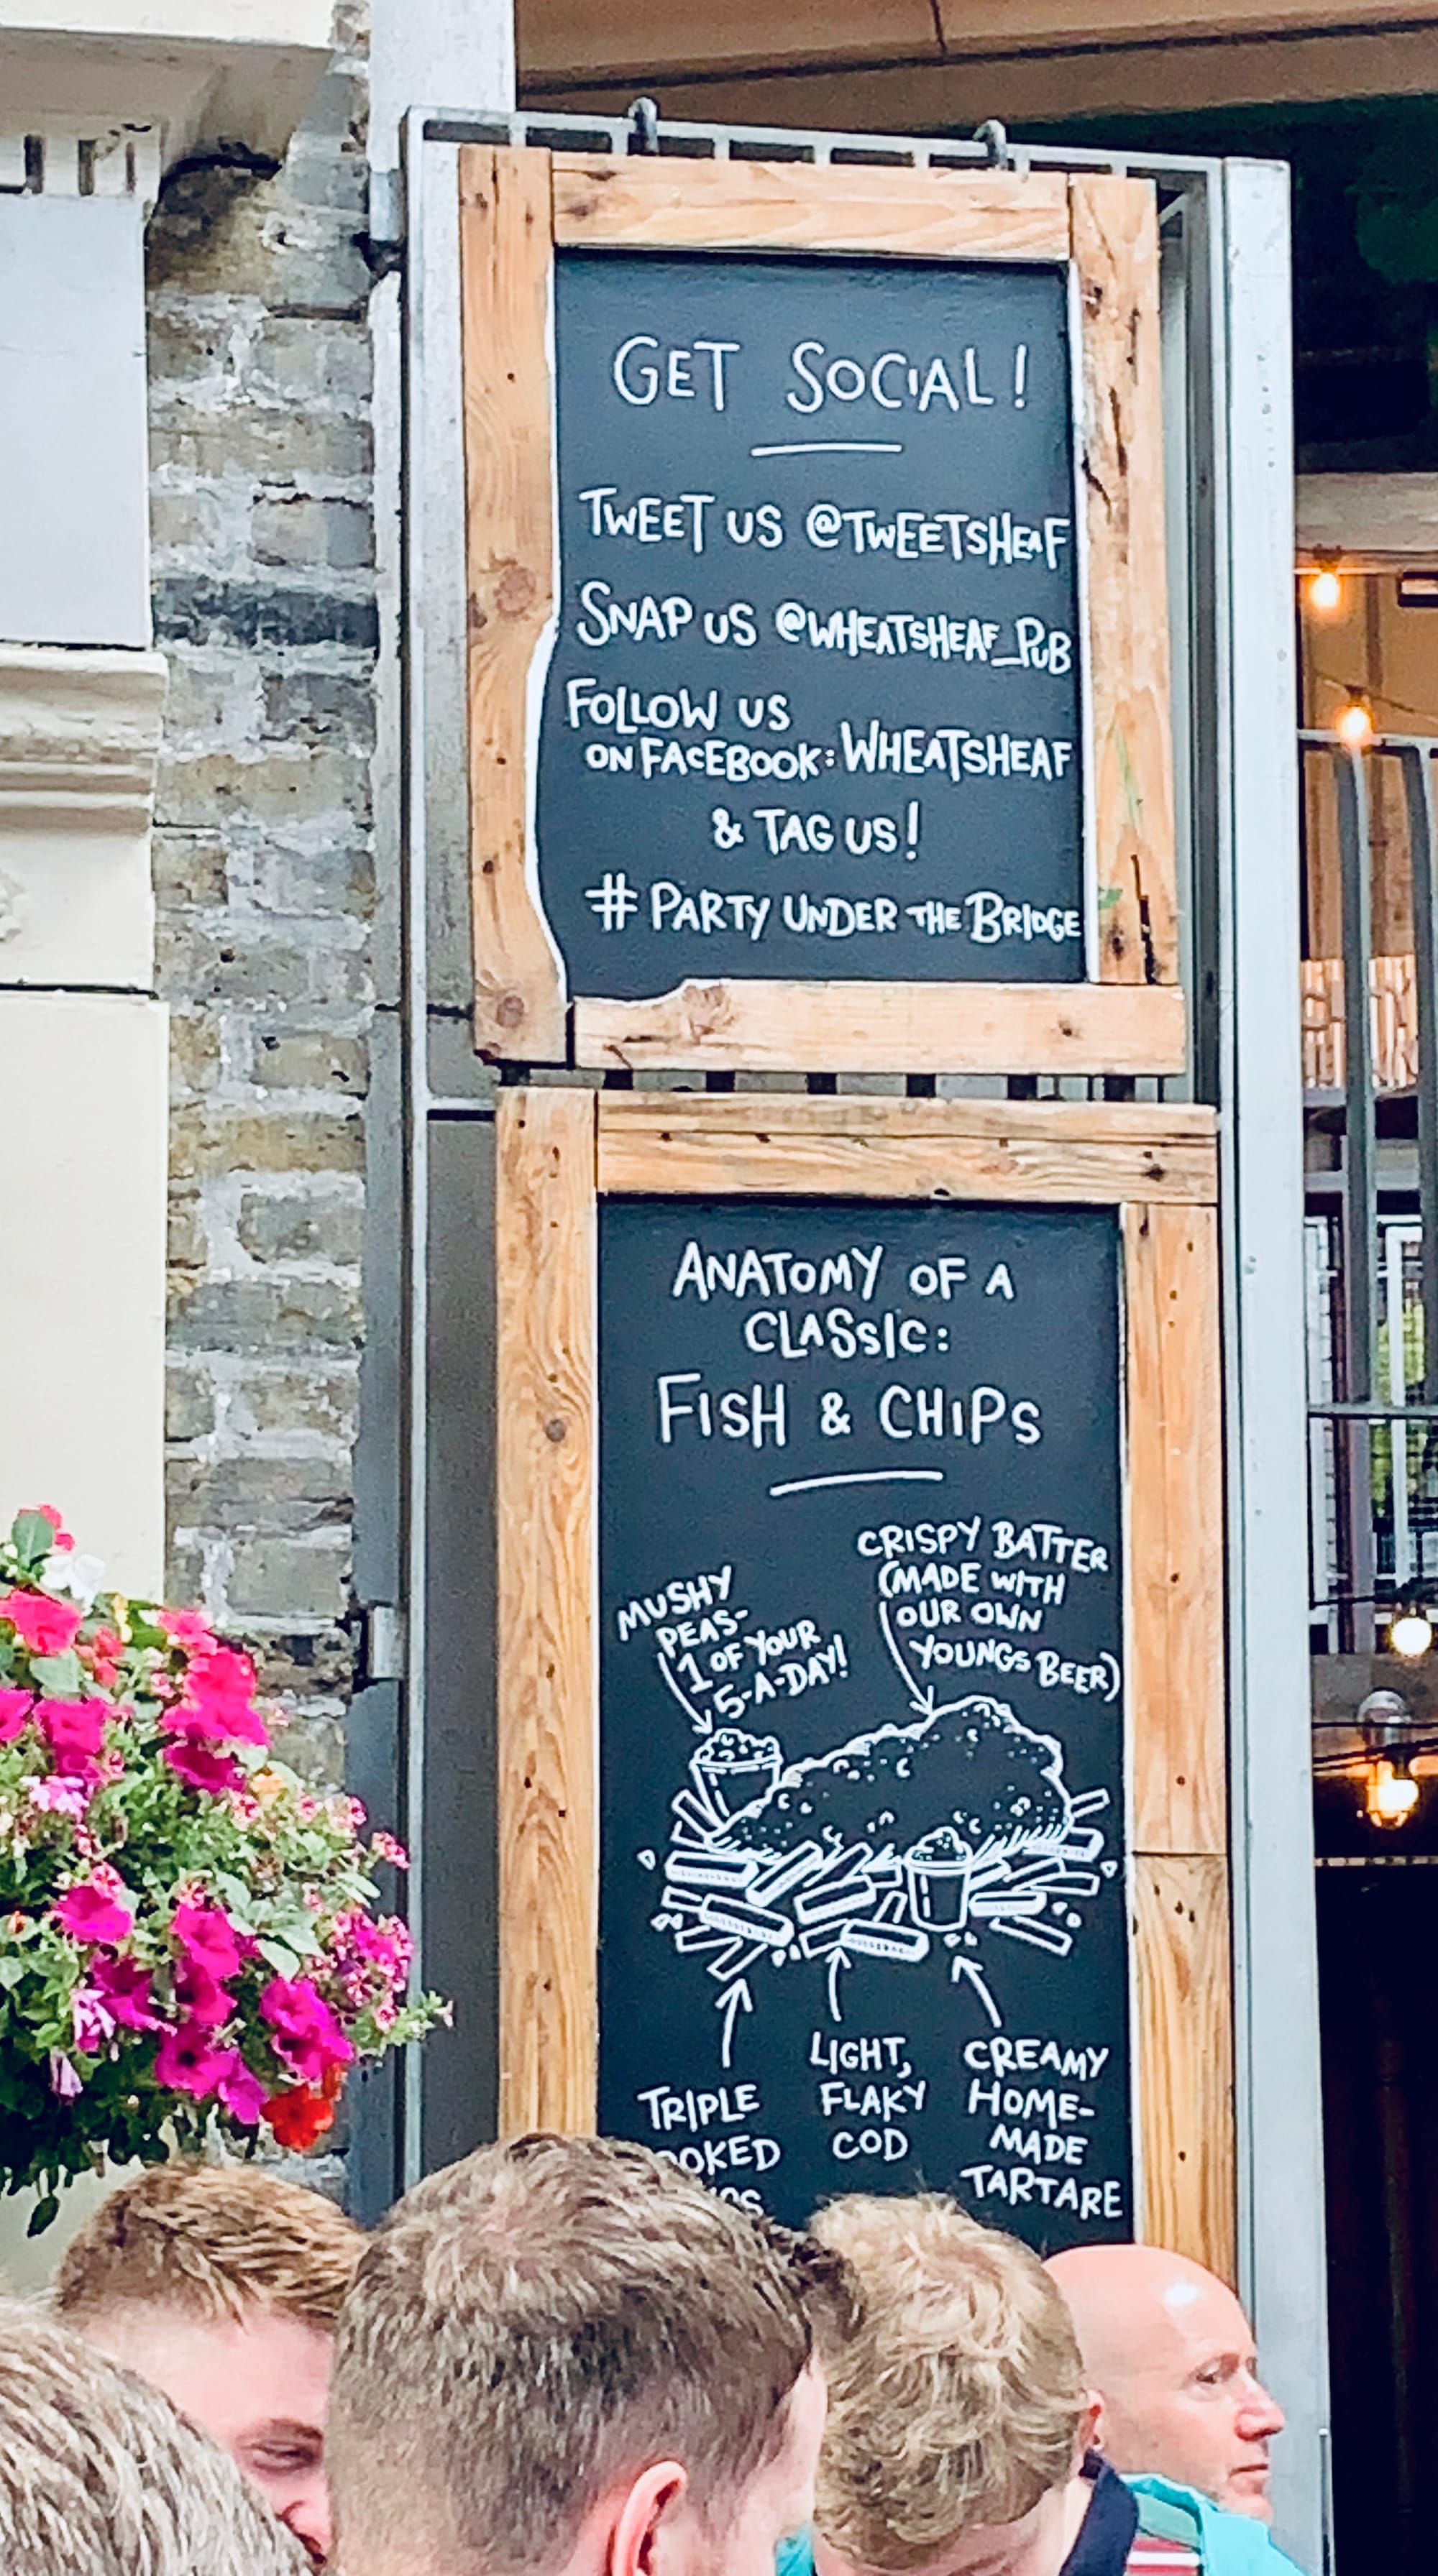 GET SOCIAL!
TWEET US @TWEETSHEAF
SNAP US @WHEATSHEAF_PUB
FOLLOW US
ON FACEBOOK: WHEATSHEAF
& TAG US!
# PARTY UNDER THE BRIDGE
ANATOMY OF A
CLASSIC:
FISH & CHIPS
CRISPY BATTER
(MADE WITH
OUR OWN
YOUNGS BEER)
MUSHY
PEAS-
1 OF YOUR
5-A-DAY!
TRIPLE
LIGHT,
FLAKY
COD
CREAMY
HOME-
MADE
TARTARE